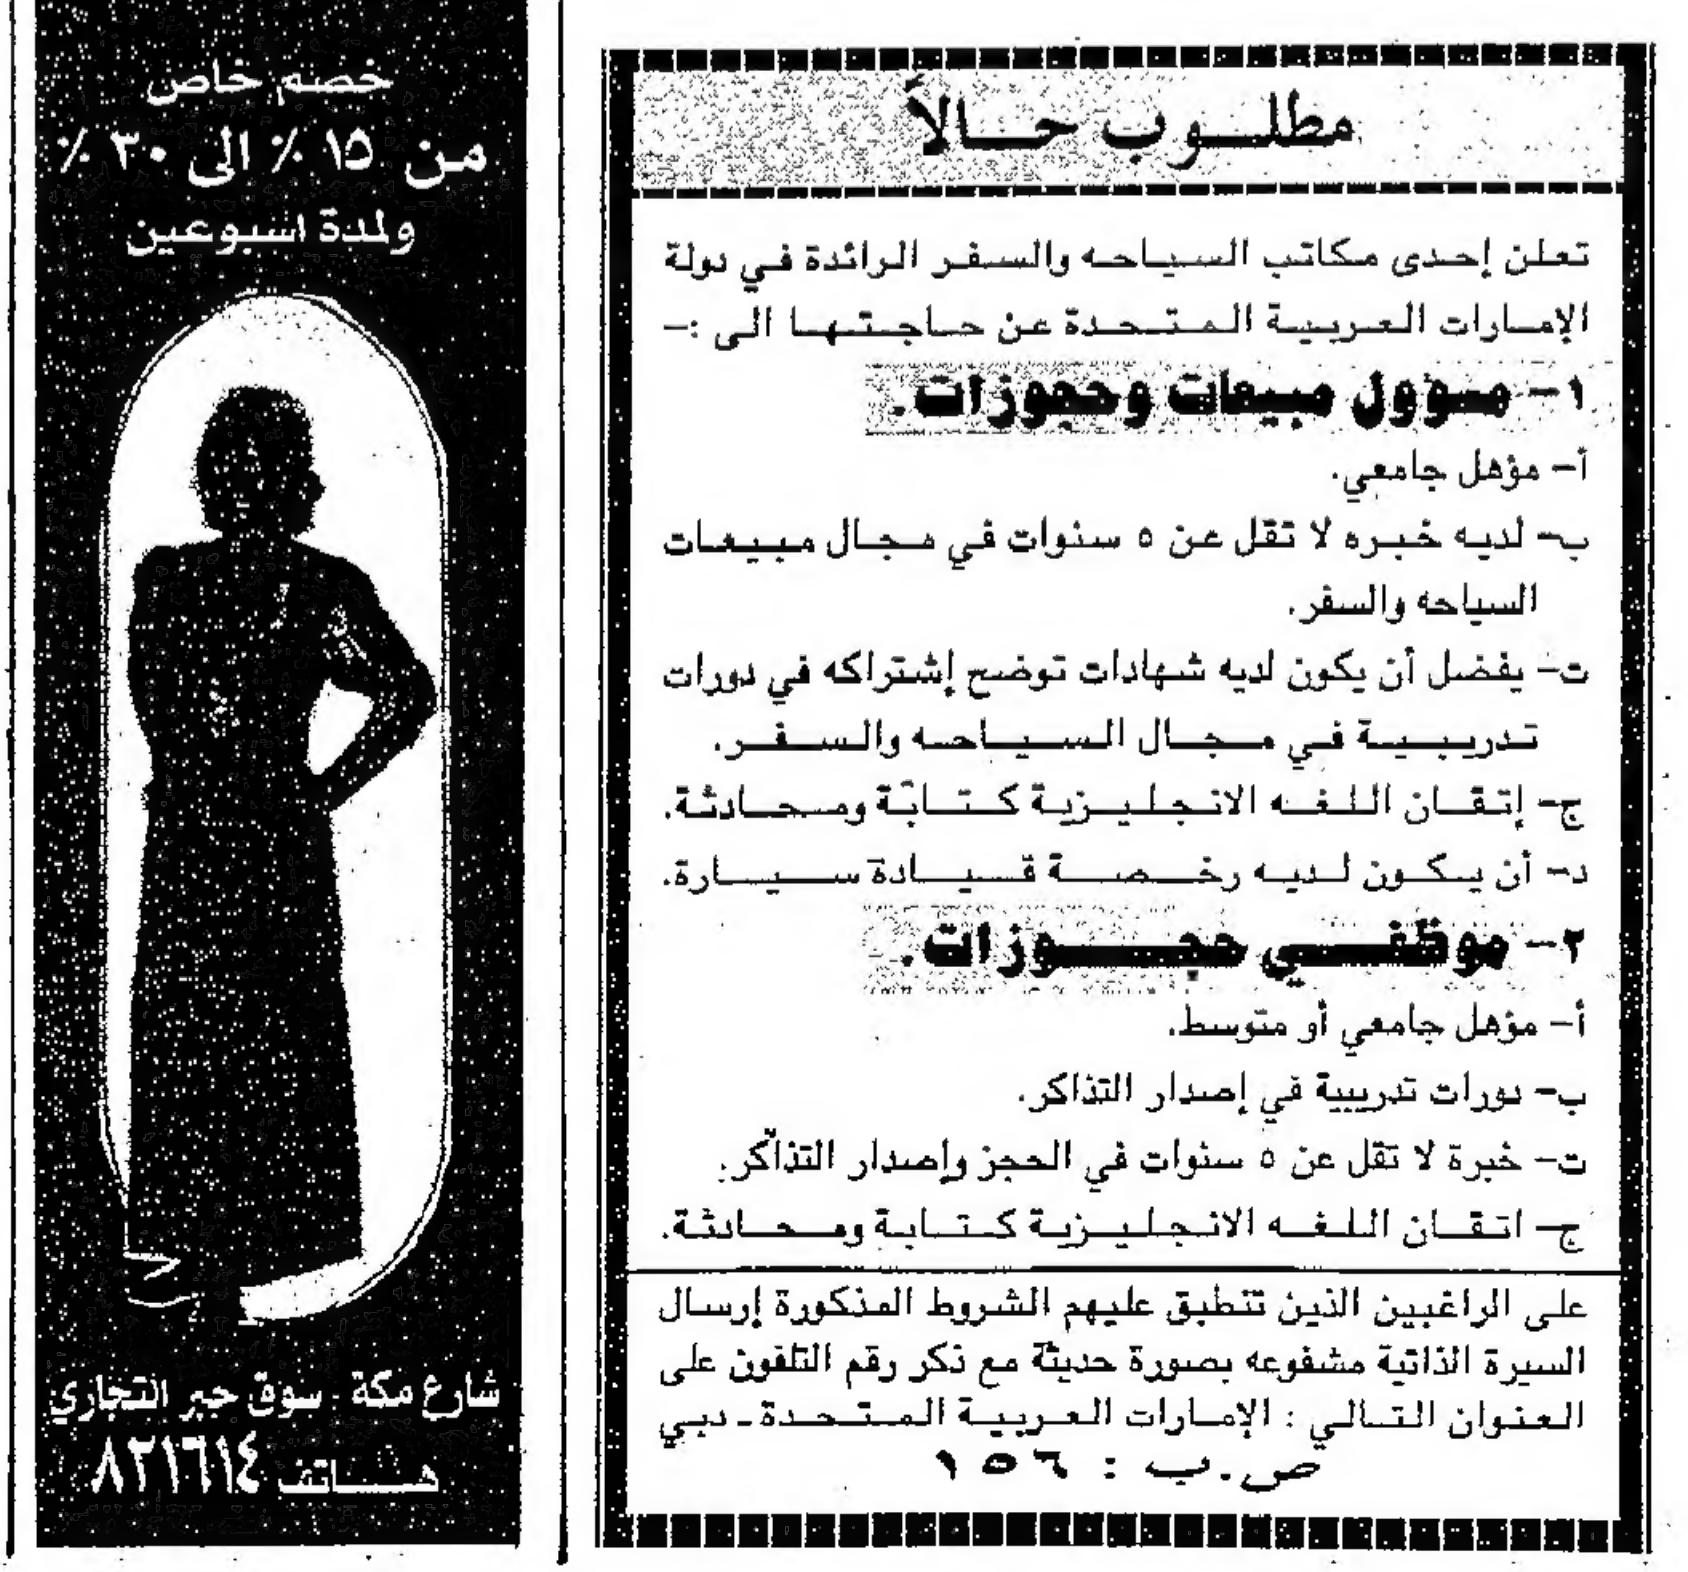 مطلوب حالاً
تعلن إحدى مكاتب السياحه والسفر الرائدة في دولة
الإمارات العربية المتحدة عن حاجتها الى :-
١- مسؤول مبيعات وحجوزات.
أ- مؤهل جامعي.
ب- لديه خبره لا تقل عن ٥ سنوات في مجال مبيعات
السياحه والسفر.
ت- يفضل أن يكون لديه شهادات توضح إشتراكه في دورات
تدريبية في مجال السياحه والسفر.
ج- إتقان اللغه الانجليزية كتابة ومحادثة.
د- أن يكون لديه رخصة قيادة سيارة.
٢- موظفي حجوزات.
أ- مؤهل جامعي أو متوسط.
ب- دورات تدريبية في إصدار التذاكر.
ت- خبرة لا تقل عن ٥ سنوات في الحجز وإصدار التذاكر.
ج- اتقان اللغه الانجليزية كتابة ومحادثة.
على الراغبين الذين تنطبق عليهم الشروط المذكورة إرسال
السيرة الذاتية مشفوعه بصورة حديثة مع ذكر رقم التلفون على
العنوان التالي : الإمارات العربية المتحدة - دبي
ص.ب : ١٥٦
خصم خاص
من ١٥ % الى ٣٠ %
ولمدة اسبوعين
شارع مكة - سوق جبر التجاري
هاتف ٨٢١٦١٤